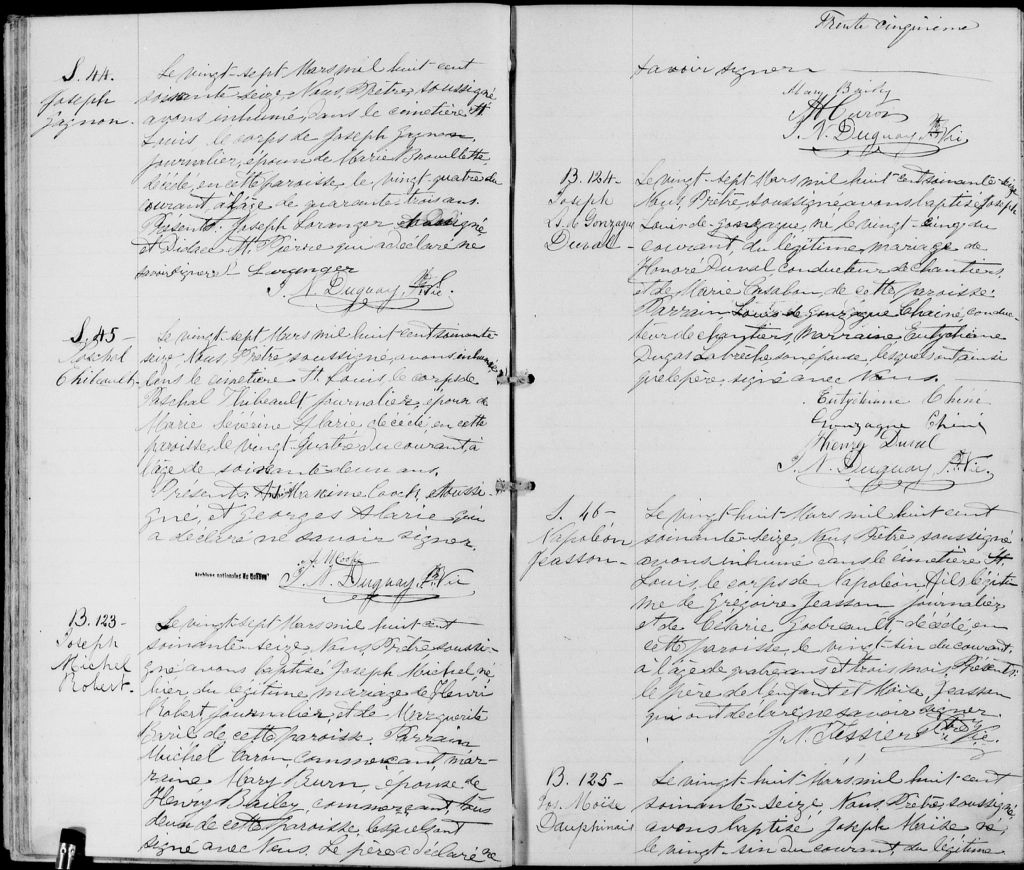 S. 44.
Joseph
Gagnon.
Le vingt-sept Mars mil huit cent
soixante seize, Nous, Prêtre soussigné
avons inhumé, dans le cimetière St
Louis le corps de Joseph Gagnon,
journalier, époux de Marie Brouillette,
décédé, en cette paroisse, le vingt quatre du
courant à l'âge de quarante trois ans.
Présents: Joseph Loranger soussigné
et Didace St. Pierre qui a déclaré ne
savoir signer. J. Loranger
J. N. Duguay, Ptre Vic.
S. 45 -
Paschal
Thibault.
Le vingt-sept Mars mil huit cent soixante
seize, Nous, Prêtre soussigné, avons inhumé
dans le cimetière St. Louis le corps de
Paschal Thibeault journalier, époux de
Marie Séverine Alarie, décédé, en cette
paroisse, le vingt-quatre du courant, à
l'âge de soixante-deux ans.
Présents: Maxime Coock, soussi-
gné, et Georges Alarie qui
a déclaré ne savoir signer.
J. N. Duguay, Ptre Vic
Archives nationales du Québec
B. 123 -
Joseph
Michel
Robert.
Le vingt-sept Mars mil huit cent
soixante-seize, Nous, Prêtre soussi-
gné avons baptisé Joseph Michel né
hier, du légitime mariage de Henri
Robert, journalier et de Marguerite
de cette paroisse. Parrain
Michel Caron, commerçant mar-
raine Mary Burn, épouse de
Henry Bailey, commerçant tous
deux de cette paroisse, lesquels ont
signé avec Nous. Le père a déclaré ne
Trente cinquième
savoir signer
Mary Baily
M Caron
J. N. Duguay, Ptre Vic
B. 124 -
Joseph
Ls. de Gonzague
Duval
Le vingt-sept Mars mil huit cent soixante-seize
Nous, Prêtre, soussigné, avons baptisé Joseph
Louis-de-Gonzague, né le vingt-cinq du
courant, du légitime mariage de
Honoré Duval conducteur de chantiers,
et de Marie Casabon, de cette paroisse.
Parrain Louis de Gonzague Chainé, conduc-
teur de chantiers, marraine Eutychiene
Dugas Labrèche son épouse, lesquels ont, ainsi
que le père, signé avec Nous.
Eutychienne Chené
Gonzague Chiné
Henry Duval
J. N. Duguay, Ptre Vic.
S. 46 -
Napoléon
Jeasson -
Le vingt-huit Mars mil huit cent
soixante-seize, Nous Prêtre soussigné
avons inhumé dans le cimetière St.
Louis, le corps de Napoléon fils légiti-
me de Grégoire Jeasson journalier
et de Césarie Godreault, décédé, en
cette paroisse, le vingt-six du courant,
à l'âge de quatre ans et trois mois. Présents:
le père de l'enfant et Moïse Jeasson
qui ont déclaré ne savoir signer
J. N. Tessier Ptre Vic.
B. 125 -
Jos. Moïse
Dauphinais
Le vingt-huit Mars mil huit cent
soixante-seize, Nous, Prêtre, soussigné,
avons baptisé Joseph Moise né,
le vingt-six du courant, du légitime